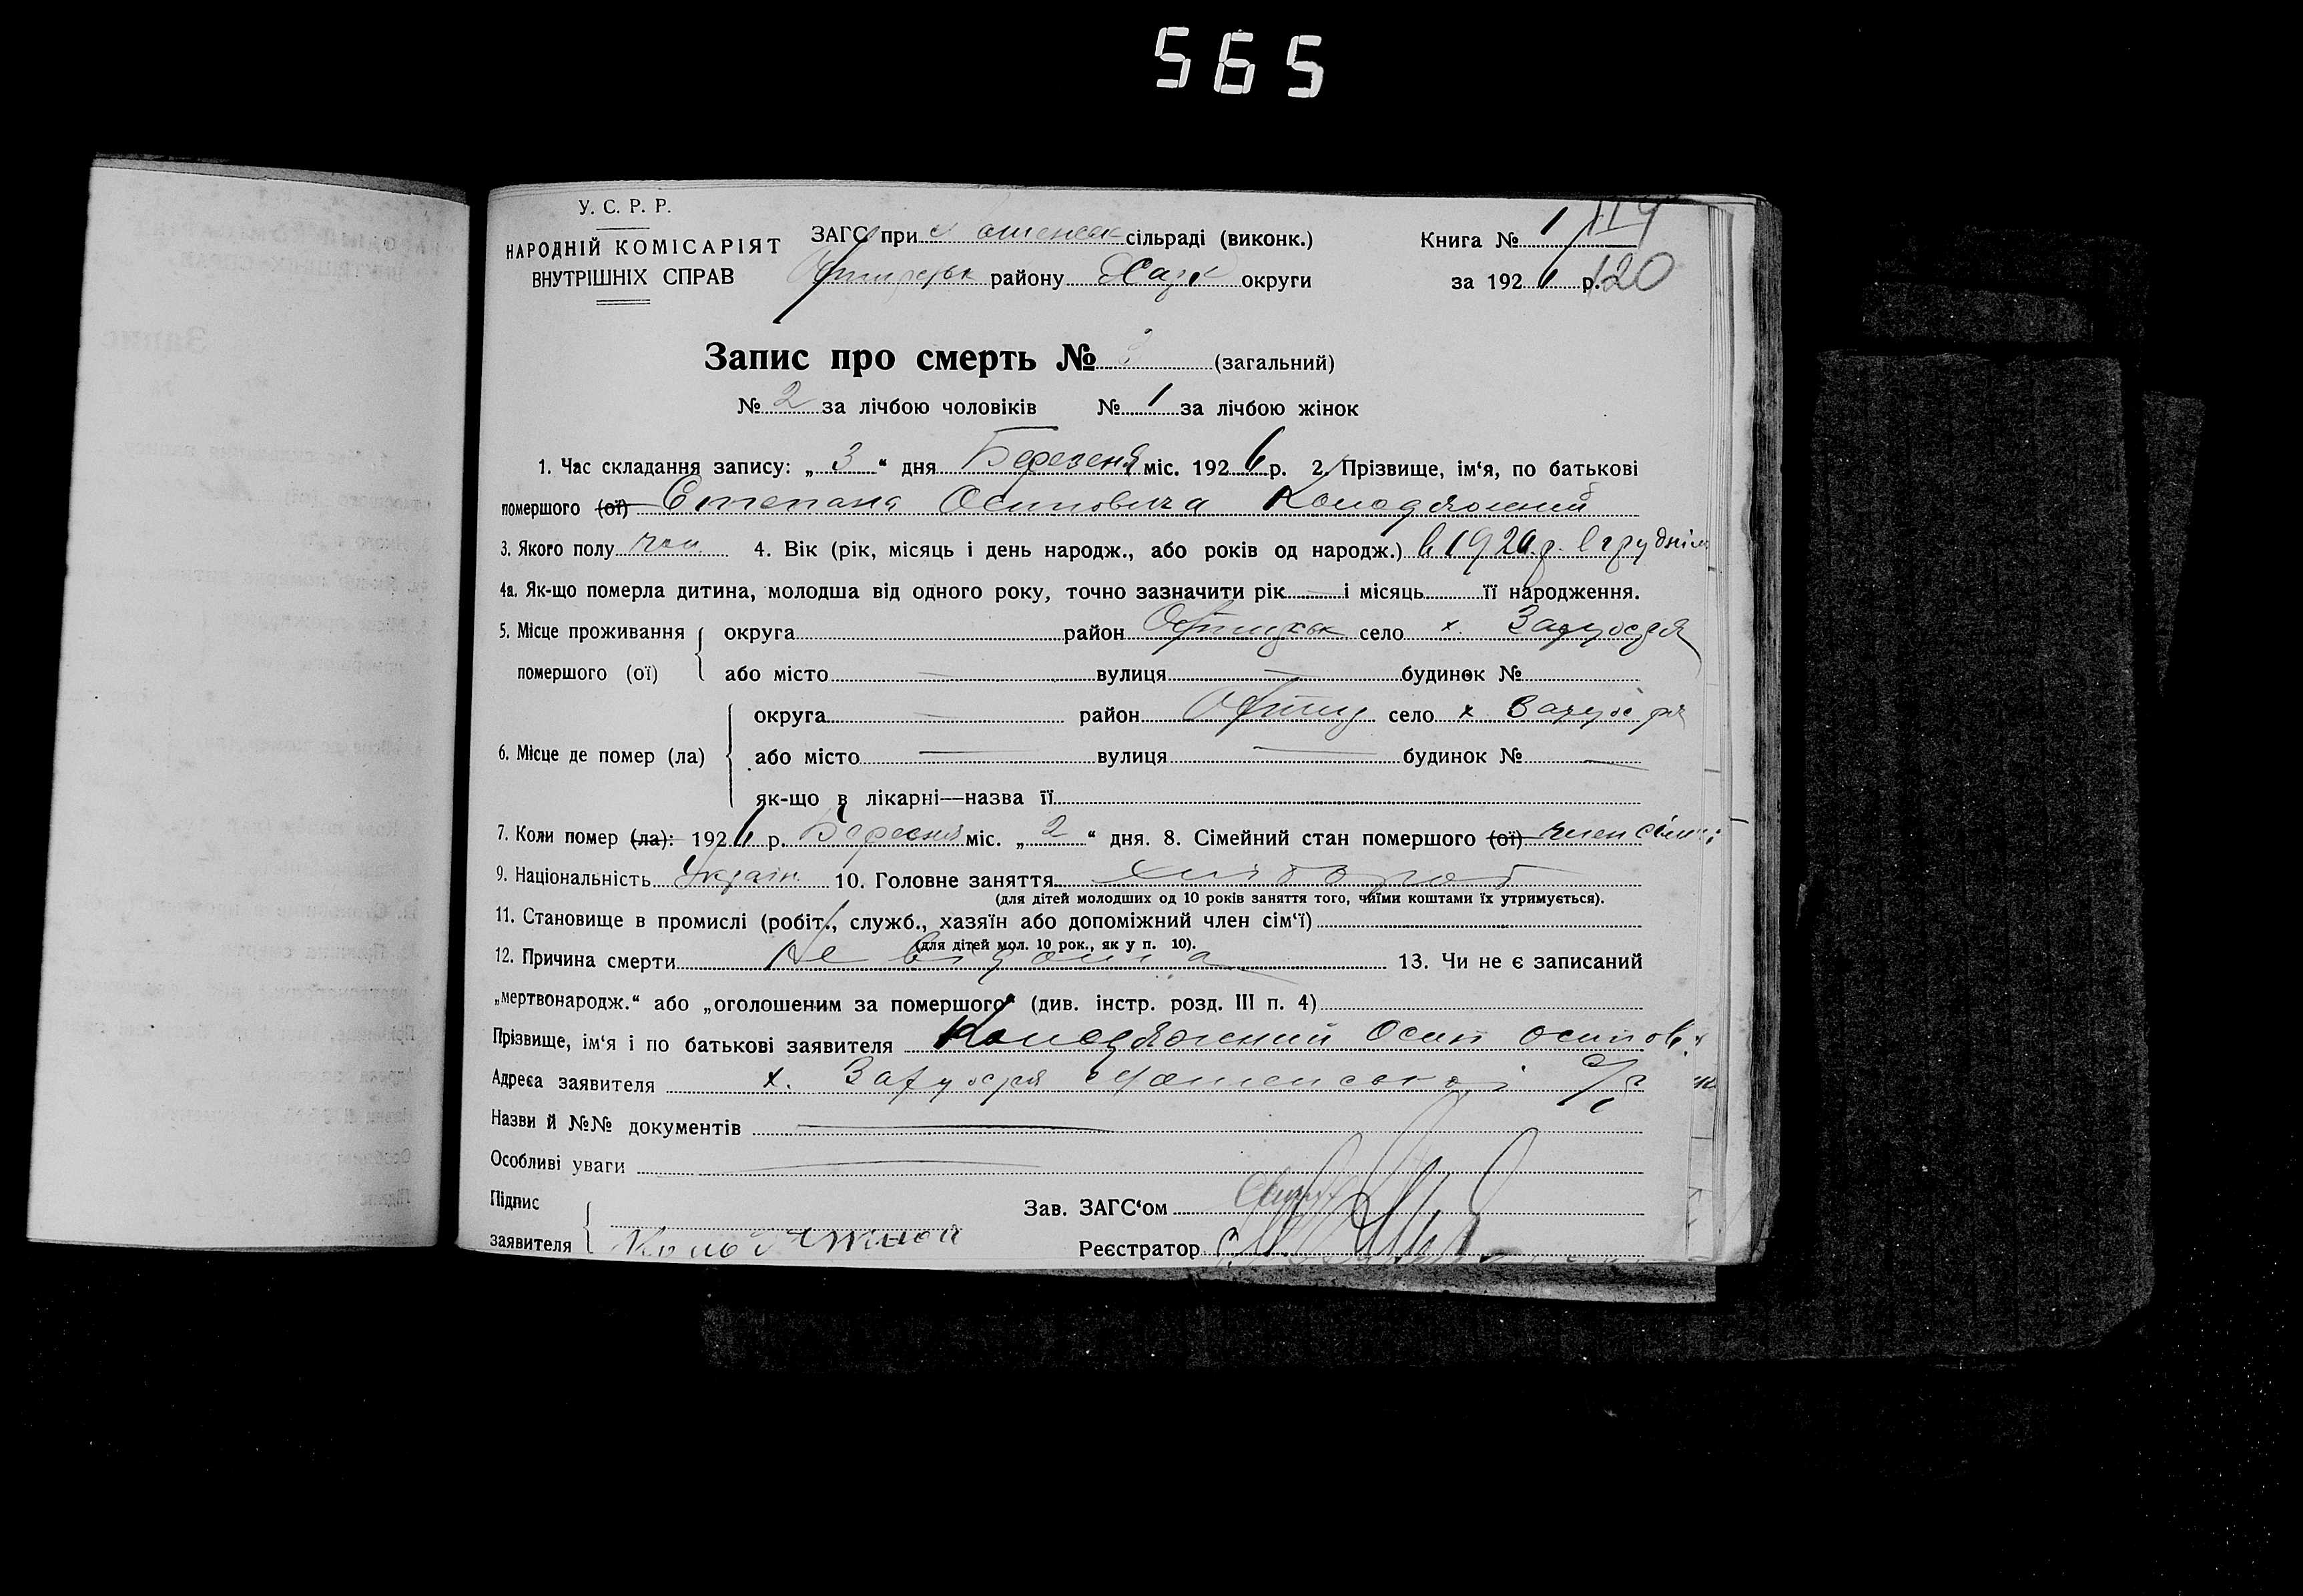 565
У. С. Р. Р.
НАРОДНІЙ КОМІСАРІЯТ
ВНУТРІШНІХ СПРАВ
ЗАГС при сільраді (виконк.)
району Харк округи
Книга № 1
за 1926 р.
120
Запис про смерть № 3 (загальний)
№ 2 за лічбою чоловіків № 1 за лічбою жінок
1. Час складання запису: „ 3 “ дня Березеня міс. 1926 р. 2. Прізвище, ім‘я, по батькові
помершого (ої) Степана Осиповича Колодяжний
3. Якого полу чол 4. Вік (рік, місяць і день народж., або років од народж.) в р. в грудні
4а. Як-що померла дитина, молодша від одного року, точно зазначити рік — і місяць її народження.
5. Місце проживання помершого (ої) округа район село х.
або місто — вулиця — будинок №
6. Місце де помер (ла) округа — район село х
або місто — вулиця — будинок № —
як-що в лікарні—назва її
7. Коли помер (ла): 1926 р. Березня міс. „ 2 “ дня. 8. Сімейний стан помершого (ої) член сімі
9. Національність Україн. 10. Головне заняття хлібороб
(для дітей молодших од 10 років заняття того, чиїми коштами їх утримується).
11. Становище в промислі (робіт., служб., хазяїн або допоміжний член сім‘ї)
(для дітей мол. 10 рок., як у п. 10).
12. Причина смерти Не відома 13. Чи не є записаний
„мертвонародж.“ або „оголошеним за помершого“ (див. інстр. розд. III п. 4)
Прізвище, ім‘я і по батькові заявителя Колодяжний Осип Осипов.
Адреса заявителя х. с/р
Назви й №№ документів —
Особливі уваги —
Підпис
заявителя
Зав. ЗАГС‘ом
Реєстратор